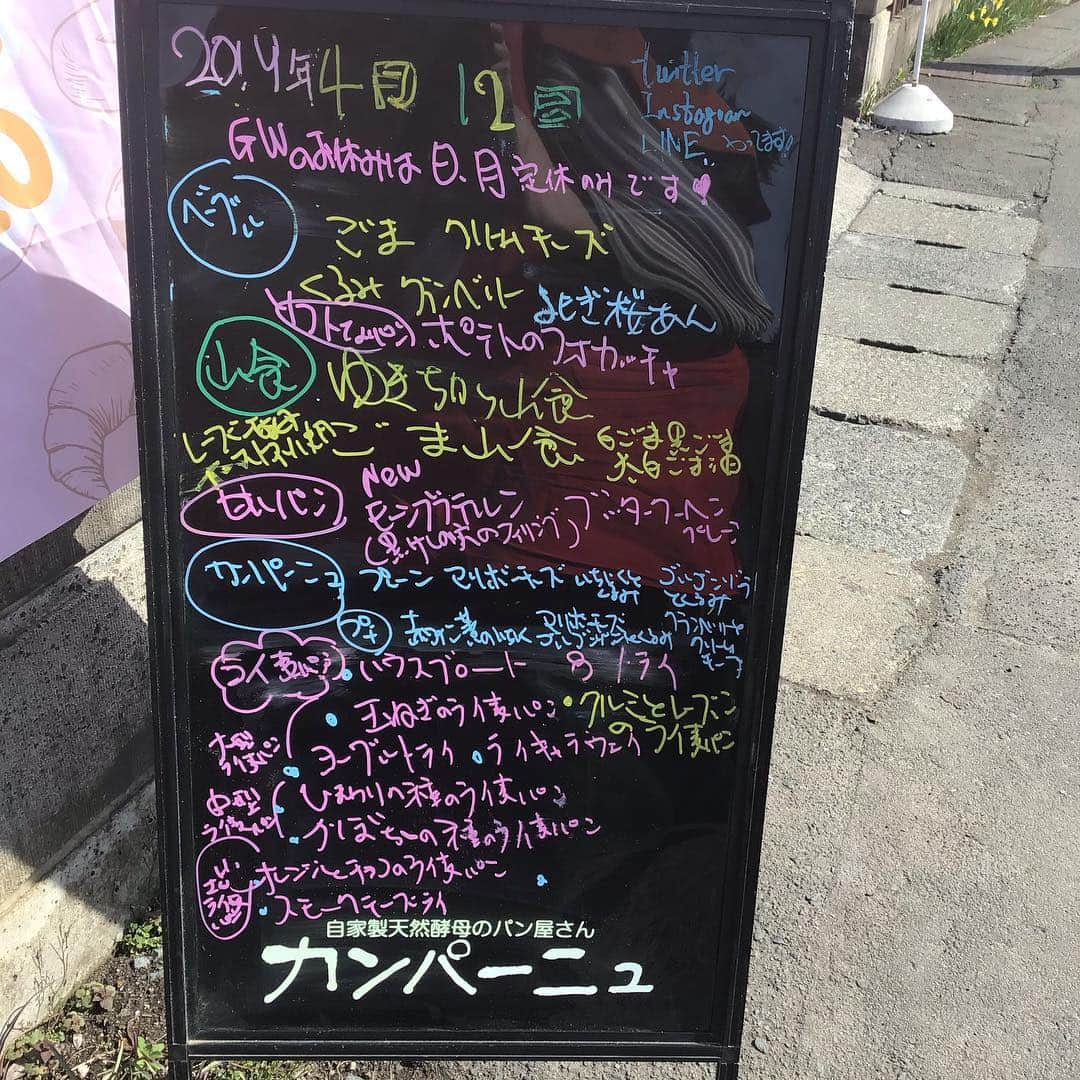 2019年4月12日
twitter
Instagram
LINE やってます
GWのお休みは日、月定休のみです♥
ベーグル
ごま クリームチーズ
くるみ クランベリー よもぎ桜あん
ポテトのフォカッチャ
山食
ゆきちから山食
ごま山食 白ごま黒ごま
太白ごま油
甘いパン
New
モーンプラテルン
(黒けしの実のフィリング)
ブッタークーヘン
プレーン
カンパーニュ
プレーン マリボーチーズ いちじくと
くるみ
ゴルゴンゾーラ
とくるみ
プチ
赤ワイン煮のいちじく マリボーチーズ
ゴルゴンゾーラとくるみ
クランベリーと
クリーム
チーズ
ライ麦パン
・ハウスブロート
・玉ねぎのライ麦パン
・クルミとレーズン
のライ麦パン
大型
ライ麦パン
・ヨーグルトライ ・ライキャラウェイ
中型
ライ麦パン
・ひまわりの種のライ麦パン
・かぼちゃの種のライ麦パン
小型
ライ麦
パン
・オレンジとチョコのライ麦パン
・スモークチーズライ
自家製天然酵母のパン屋さん
カンパーニュ